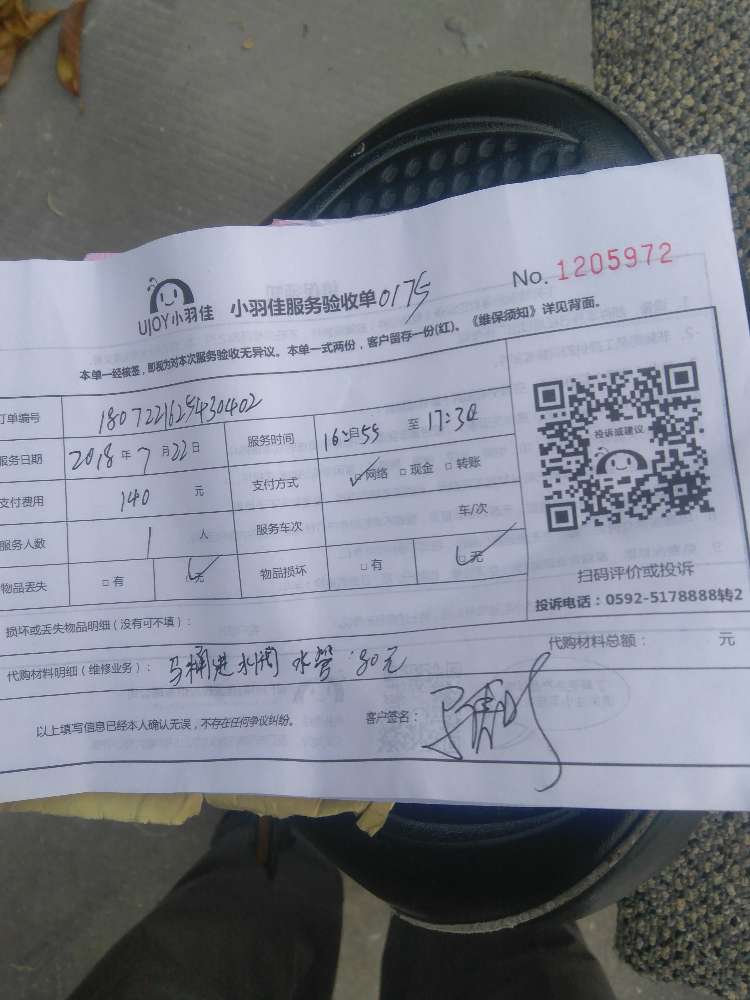 UJOY小羽佳 小羽佳服务验收单0175 No. 1205972
本单一经核签,即视为对本次服务验收无异议。本单一式两份,客户留存一份(红)。《维保须知》详见背面。
订单编号 1807221625430402
服务日期 2018年7月22日 服务时间 16 55 至 17:30
支付费用 140 元 支付方式 □网络 □现金 □转账
服务人数 1 人 服务车次 车/次
物品丢失 □有 □无 物品损坏 □有 □无
投诉或建议
扫码评价或投诉
投诉电话:0592-5178888转2
损坏或丢失物品明细(没有可不填):
代购材料明细(维修业务): 马桶进水阀 水管:80元 代购材料总额: 元
以上填写信息已经本人确认无误,不存在任何争议纠纷。 客户签名: